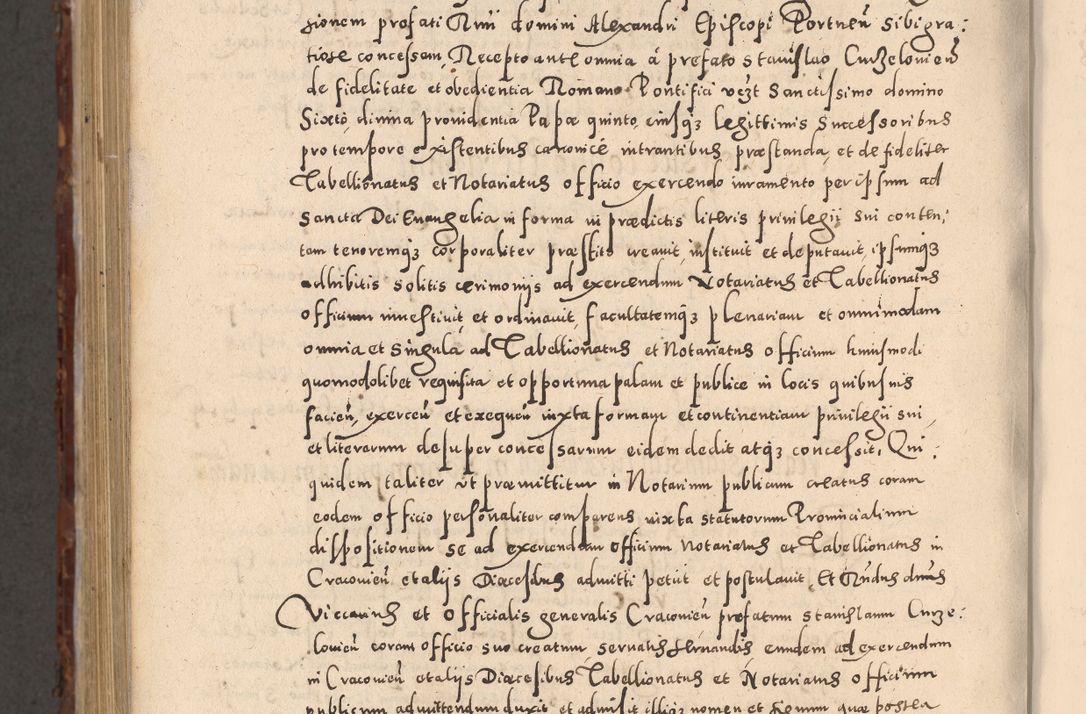 sionem profati Rmi domini Alexandri Episcopi Portueñ sibi gra:
tiose concessam, Recepto ante omnia à prefato stanislao Curzelovień
de fidelitate et obedientia Romano Pontifici vezt Sanctissimo domino
Sixto, divina providentia Papæ quinto, eiusqȝ legittimis Successoribus
pro tempore existentibus canonicè intrantibus præstanda, et de fideliter
Tabellionatus et Notariatus officio exercendo iuramento per ipsum ad
Sancta Dei Evangelia in forma in prædictis literis privilegii sui conten:
tam tenoremqȝ corporaliter præstito creavit, instituit et deputavit, ipsumqȝ
adhibitis solitis cerimonijs ad exercendum Notariatus et Tabellionatus
officium investivit et ordinavit, facultatemqȝ plenariam et omnimodam
omnia et singula ad Tabellionatus et Notariatus officium huiusmodi
quomodolibet requisita et opportuna palam et publice in locis quibusuis
facień, exerceń et exequeń iuxta formam et continentiam privilegii sui,
et literarum desuper concessarum eidem dedit atqȝ concessit, Qui:
quidem taliter ut præmittitur in Notarium publicum creatus coram
eodem officio personaliter comparens iuxta statutorum Provincialium
dispositionem se ad exercendum officium Notariatus et Tabellionatus in
Cracovień et alijs Diœcesibus admitti petiit et postulavit, Et Rndus dnus
Viccarius et Officialis generalis Cracovień prefatum stanislaum Curze:
lovień coram officio suo creatum servatis servandis eundem ad exercendum
in Cracovień et alijs Diœcesibus Tabellionatus et Notariatus officium
publicum admittendum duxit et admisit illiqȝ nomen et signum quæ postea